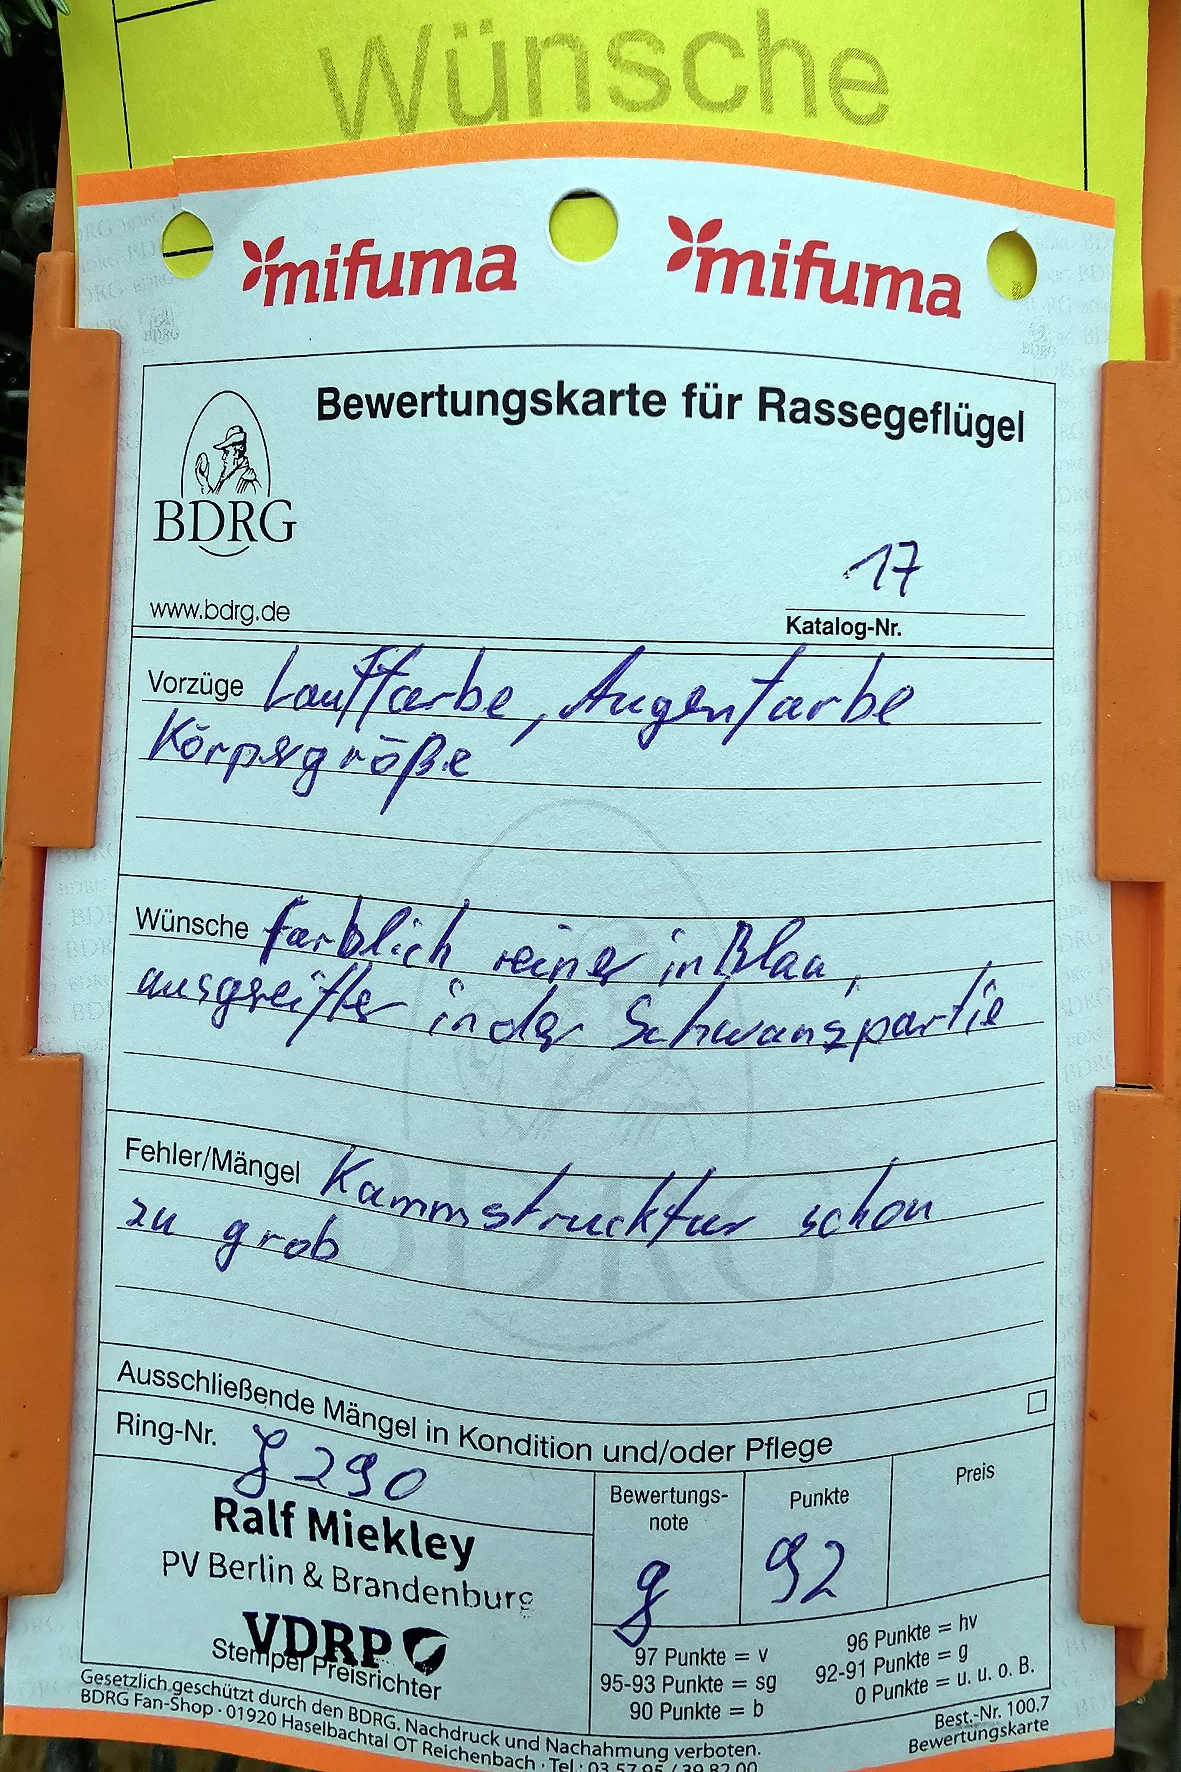 Wünsche
mifuma mifuma
Bewertungskarte für Rassegeflügel
BDRG
www.bdrg.de
17
Katalog-Nr.
Vorzüge Lauffarbe, Augenfarbe
Körpergröße
Wünsche farblich reiner in Blau,
ausgereifter in der Schwanzpartie
Fehler/Mängel Kammstrucktur schon
zu grob
Ausschließende Mängel in Kondition und/oder Pflege
Ring-Nr. 290
Ralf Miekley
PV Berlin & Brandenburg
VDRP
Stempel Preisrichter
Bewertungs-
note
g
Punkte
92
Preis
97 Punkte = v
95-93 Punkte = sg
90 Punkte = b
96 Punkte = hv
92-91 Punkte = g
0 Punkte = u. u. o. B.
Gesetzlich geschützt durch den BDRG. Nachdruck und Nachahmung verboten.
BDRG Fan-Shop · 01920 Haselbachtal OT Reichenbach · Tel.: 03 57 95 / 39 82 00
Best.-Nr. 100.7
Bewertungskarte